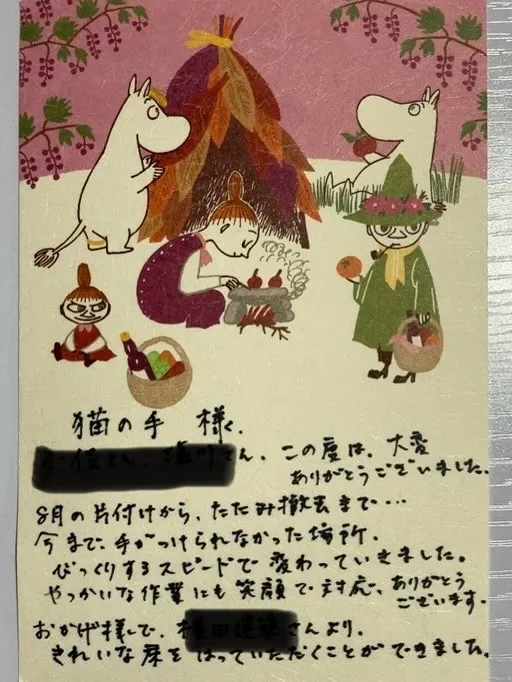 猫の手 様
さん、この度は、大変
ありがとうございました。
8月の片付けから、たたみ撤去まで…
今まで、手がつけられなかった場所。
びっくりするスピードで変わっていきました。
やっかいな作業にも笑顔で対応、ありがとう
ございます。
おかげ様で、さんより、
きれいな床をはっていただくことができました。